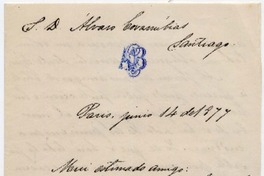 S. D. Álvaro Covarrúbias
Santiago.
Paris, junio 14 de 1877
Mui estimado amigo: